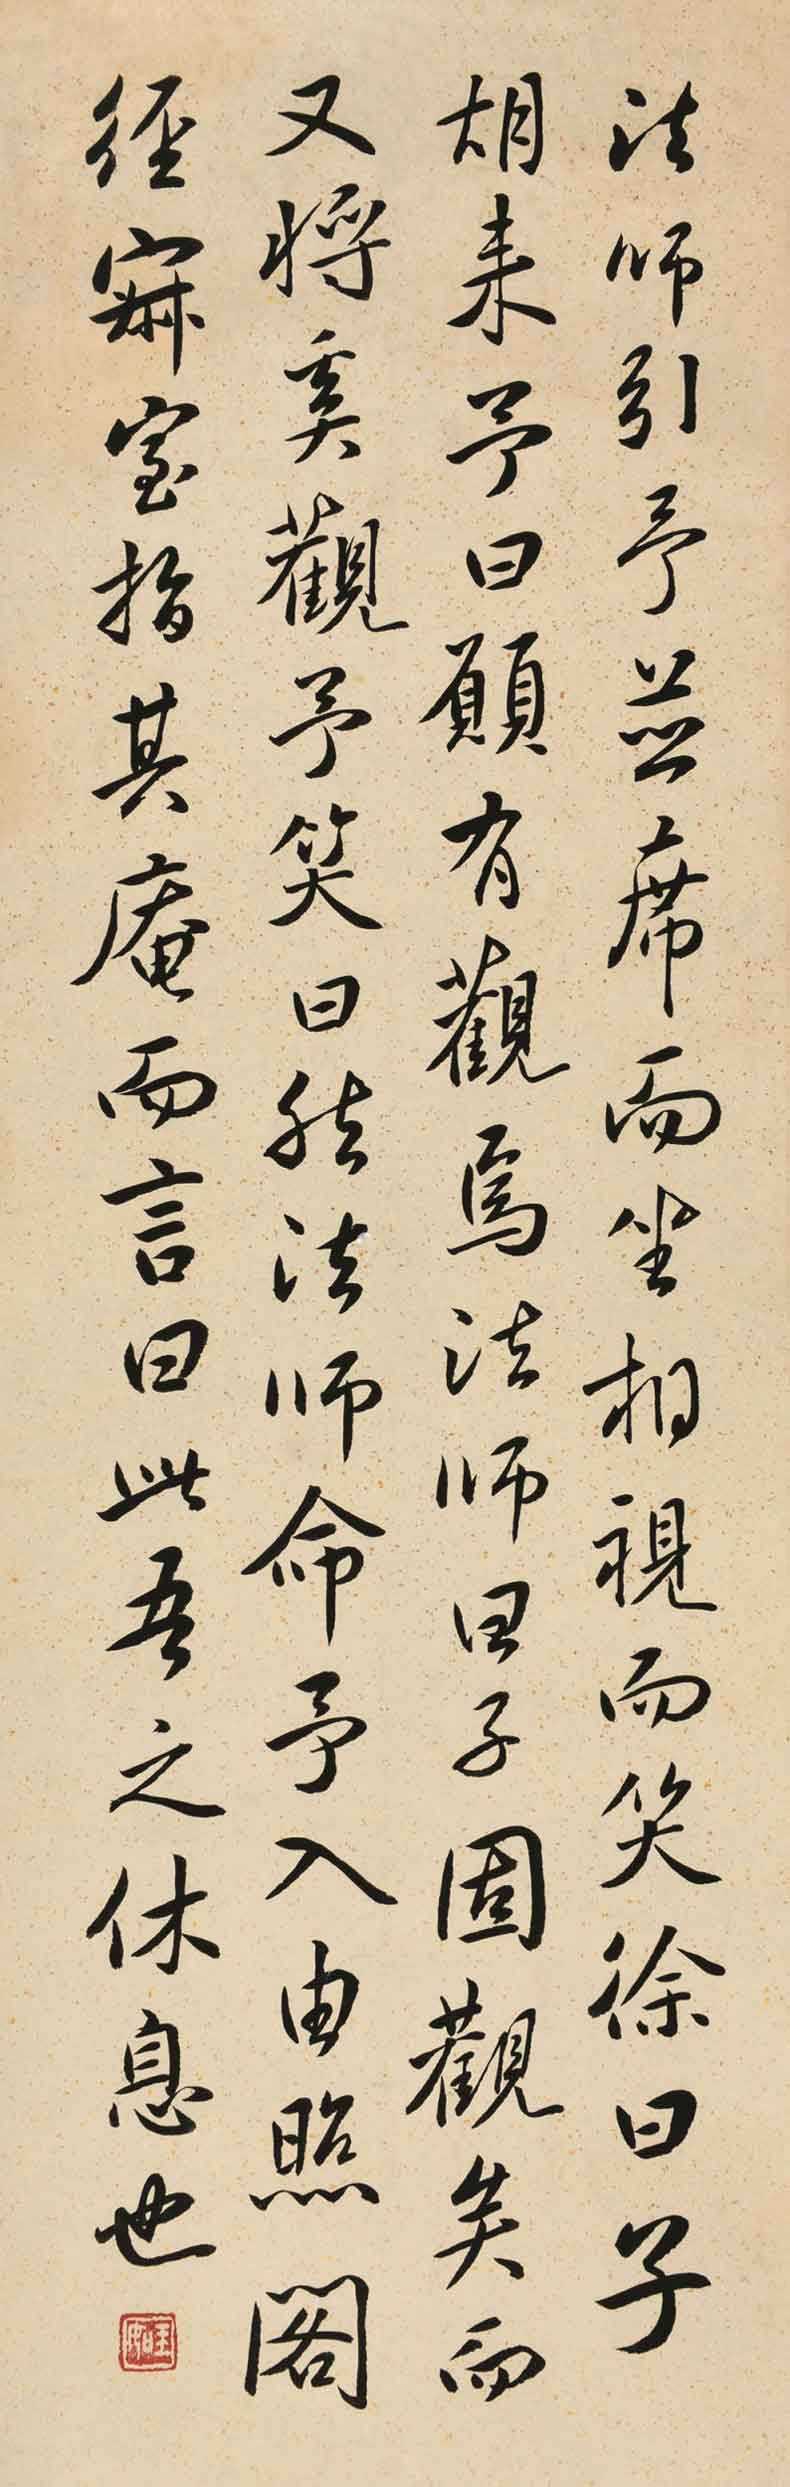 法师引予並席而坐相視而笑徐曰子
胡来予曰願有觀焉法师曰子固觀矣而
又将奚觀予笑曰然法师命予入由照閣
徑寂室指其庵而言曰此吾之休息也